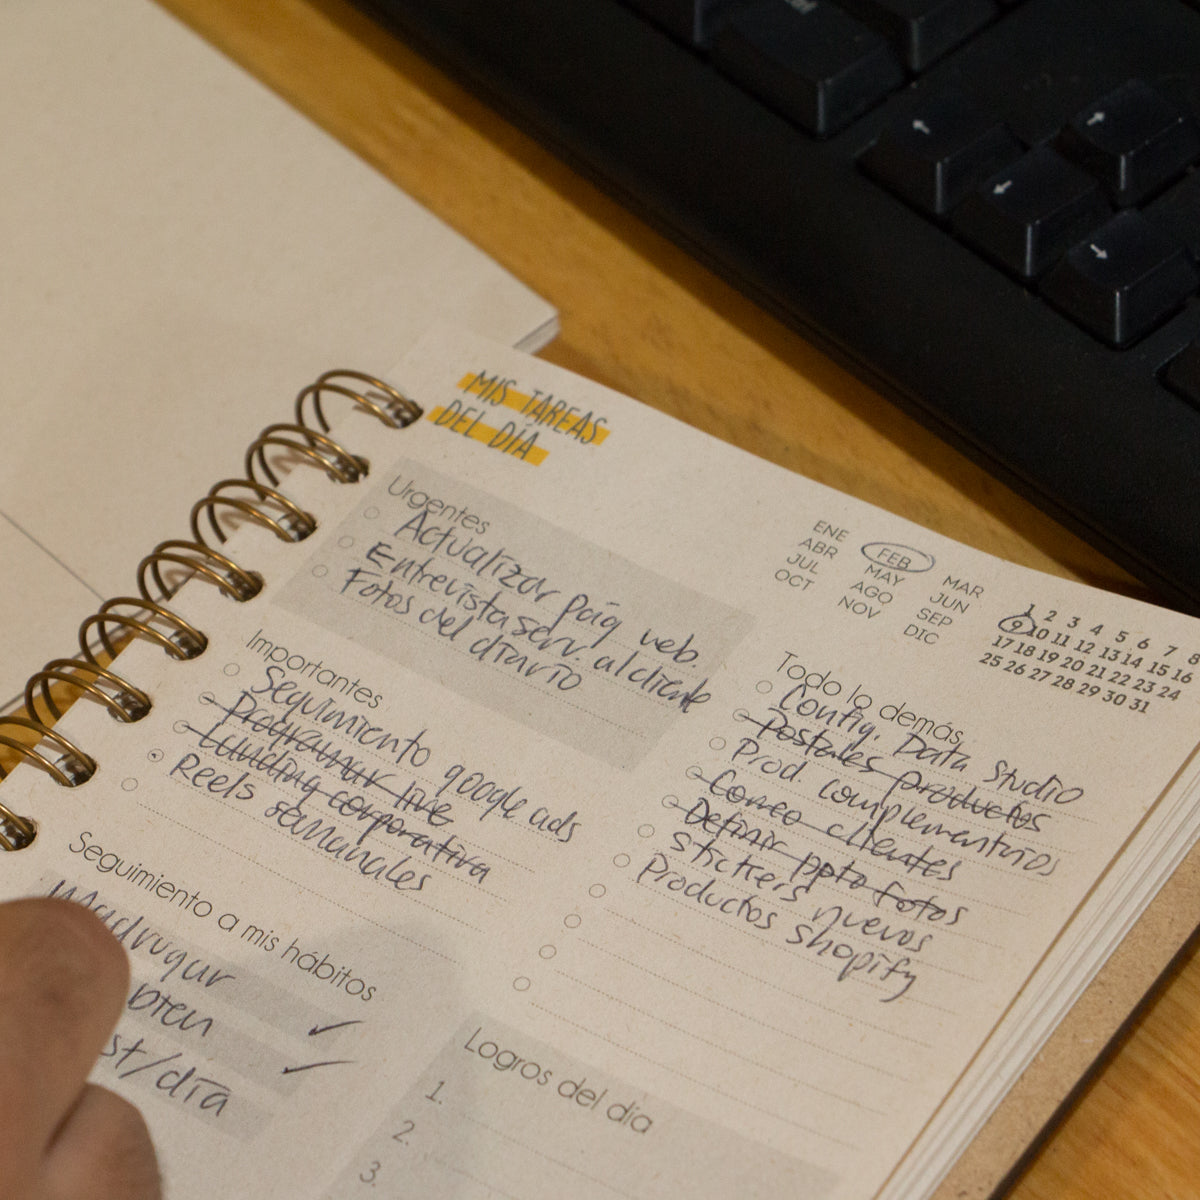 MIS TAREAS
DEL DÍA
Urgentes
Actualizar pág web.
Entrevista serv. al cliente
Fotos del diario
Importantes
Seguimiento google ads
Programar live
Landing corporativa
Reels semanales
Seguimiento a mis hábitos
Madrugar
bien
st/día
ENE FEB MAR
ABR MAY JUN
JUL AGO SEP
OCT NOV DIC
1 2 3 4 5 6 7 8
9 10 11 12 13 14 15 16
17 18 19 20 21 22 23 24
25 26 27 28 29 30 31
Todo lo demás
Config. Data Studio
Postales productos
Prod. complementarios
Correo clientes
Definir ppto fotos
Stickers nuevos
Productos shopify
Logros del día
1.
2.
3.